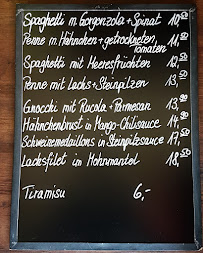 Spaghetti m. Gorgonzola + Spinat 10,50
Penne m. Hähnchen + getrockneten Tomaten 11,50
Spaghetti mit Meeresfrüchten 12,50
Penne mit Lachs + Steinpilzen 13,50
Gnocchi mit Rucola + Parmesan 13,90
Hähnchenbrust in Mango-Chilisauce 14,90
Schweinemedaillons in Steinpilzsauce 17,50
Lachsfilet im Mohnmantel 18,50
Tiramisu 6,-